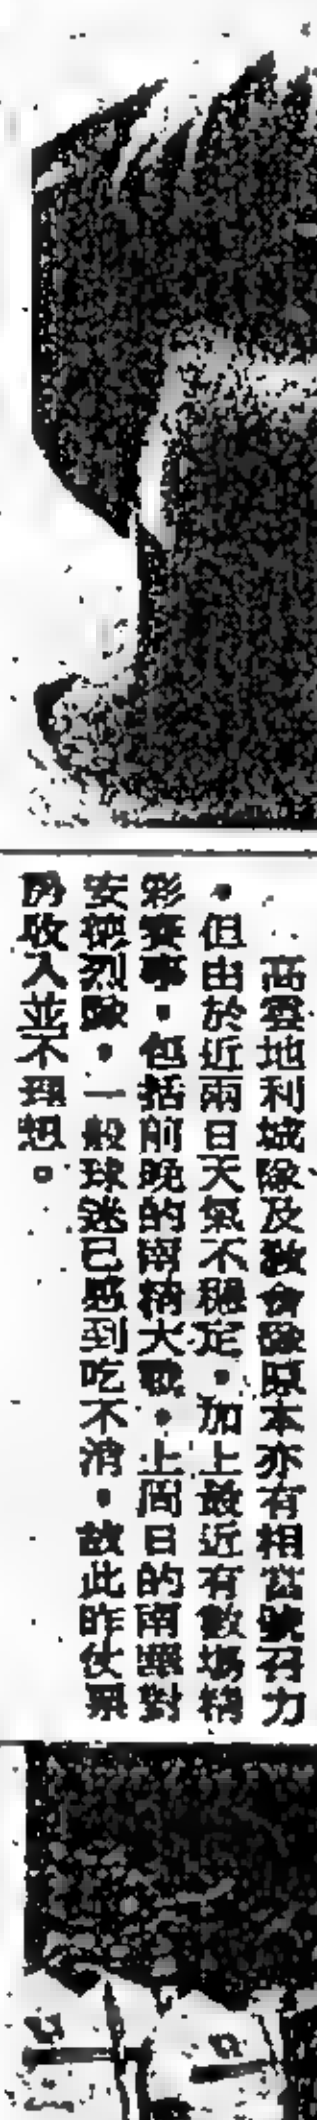 高雲地利城隊及教會隊原本亦有相當號召力
，但由於近兩日天氣不穩定，加上最近有數場精
彩賽事，包括前晚的南精大戰，上周日的南華對
安徒烈隊，一般球迷已感到吃不消，故此昨仗票
房收入並不理想。